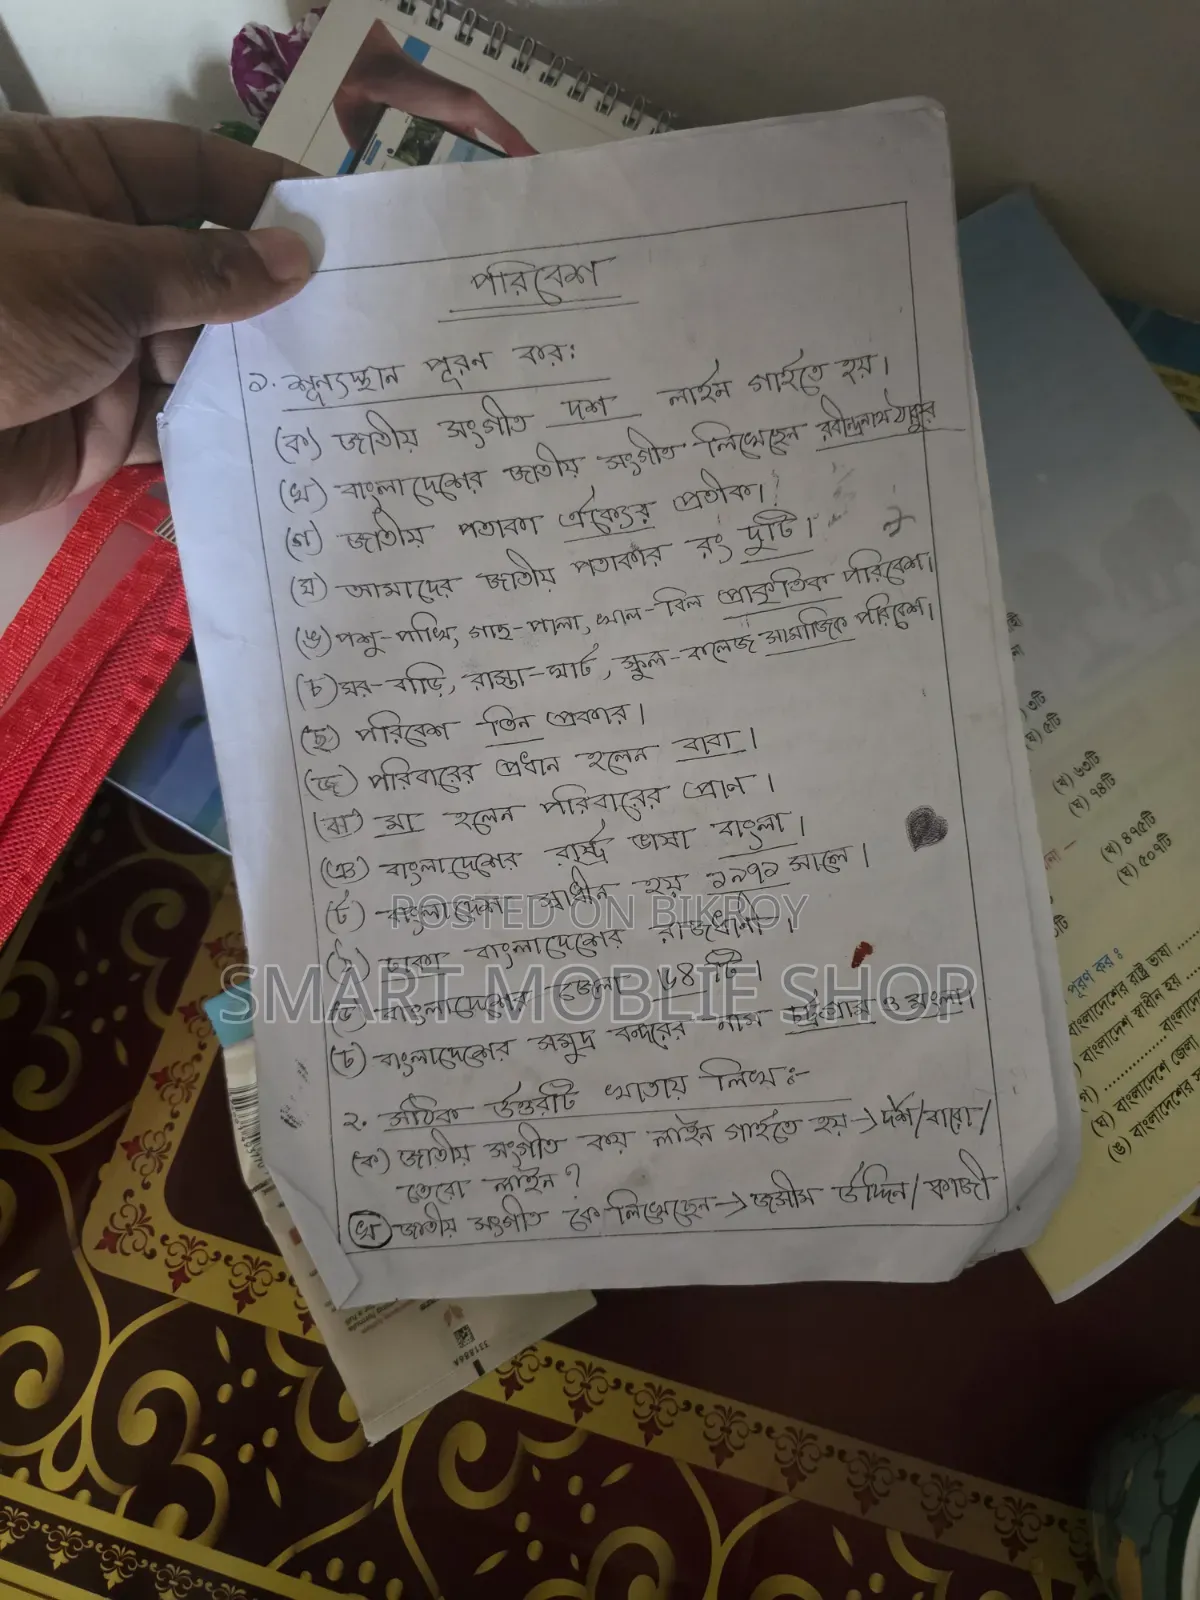 পরিবেশ
১. শূন্যস্থান পূরন কর:
(ক) জাতীয় সংগীত দশ লাইন গাইতে হয়।
(খ) বাংলাদেশের জাতীয় সংগীত লিখেছেন রবীন্দ্রনাথ ঠাকুর
(গ) জাতীয় পতাকা ঐক্যের প্রতীক।
(ঘ) আমাদের জাতীয় পতাকার রং দুটি।
(ঙ) পশু-পাখি, গাছ-পালা, খাল-বিল প্রাকৃতিক পরিবেশ।
(চ) ঘর-বাড়ি, রাস্তা-ঘাট, স্কুল-কলেজ সামাজিক পরিবেশ।
(ছ) পরিবেশ তিন প্রকার।
(জ) পরিবারের প্রধান হলেন বাবা।
(ঝ) মা হলেন পরিবারের প্রাণ।
(ঞ) বাংলাদেশের রাষ্ট্র ভাষা বাংলা।
(ট) বাংলাদেশ স্বাধীন হয় ১৯৭১ সালে।
(ঠ) ঢাকা বাংলাদেশের রাজধানী।
(ড) বাংলাদেশের জেলা ৬৪ টি।
(ঢ) বাংলাদেশের সমুদ্র বন্দরের নাম চট্টগ্রাম ও মংলা।
২. সঠিক উত্তরটি খাতায় লিখ:-
(ক) জাতীয় সংগীত কয় লাইন গাইতে হয় → দশ/বারো/
তেরো লাইন?
(খ) জাতীয় সংগীত কে লিখেছেন → জসীম উদ্দিন/কাজী
POSTED ON BIKROY
SMART MOBLIE SHOP
৩টি
(ঘ) ৫টি
(খ) ৬৩টি
(ঘ) ৭৪টি
(খ) ৪৭৫টি
(ঘ) ৫০৭টি
পূরণ কর :
বাংলাদেশের রাষ্ট্র ভাষা ......
) বাংলাদেশ স্বাধীন হয় ......
(গ) ............... বাংলাদে
(ঘ) বাংলাদেশে জেলা
(ঙ) বাংলাদেশের
331886A